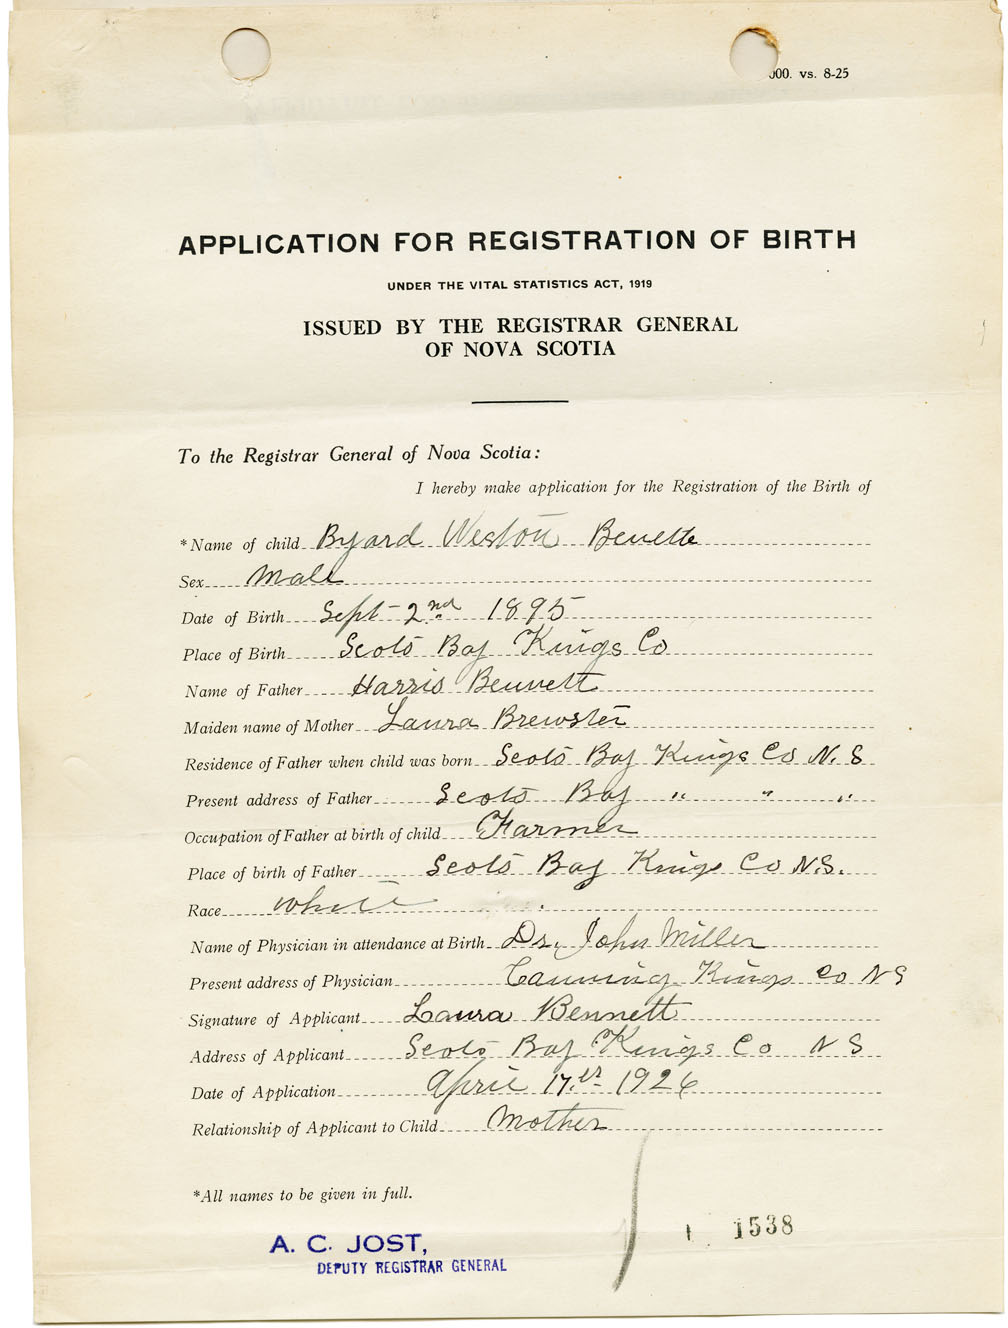 000. vs. 8-25
APPLICATION FOR REGISTRATION OF BIRTH
UNDER THE VITAL STATISTICS ACT, 1919
ISSUED BY THE REGISTRAR GENERAL
OF NOVA SCOTIA
To the Registrar General of Nova Scotia:
I hereby make application for the Registration of the Birth of
*Name of child Byard Weston Bennett
Sex Male
Date of Birth Sept 2nd 1895
Place of Birth Scots Bay Kings Co
Name of Father Harris Bennett
Maiden name of Mother Laura Brewster
Residence of Father when child was born Scots Bay Kings Co N. S
Present address of Father Scots Bay " " "
Occupation of Father at birth of child Farmer
Place of birth of Father Scots Bay Kings Co N.S.
Race white
Name of Physician in attendance at Birth Dr. John Miller
Present address of Physician Canning Kings Co N S
Signature of Applicant Laura Bennett
Address of Applicant Scots Bay Kings Co N S
Date of Application April 17 1926
Relationship of Applicant to Child Mother
*All names to be given in full.
1538
A. C. JOST,
DEPUTY REGISTRAR GENERAL